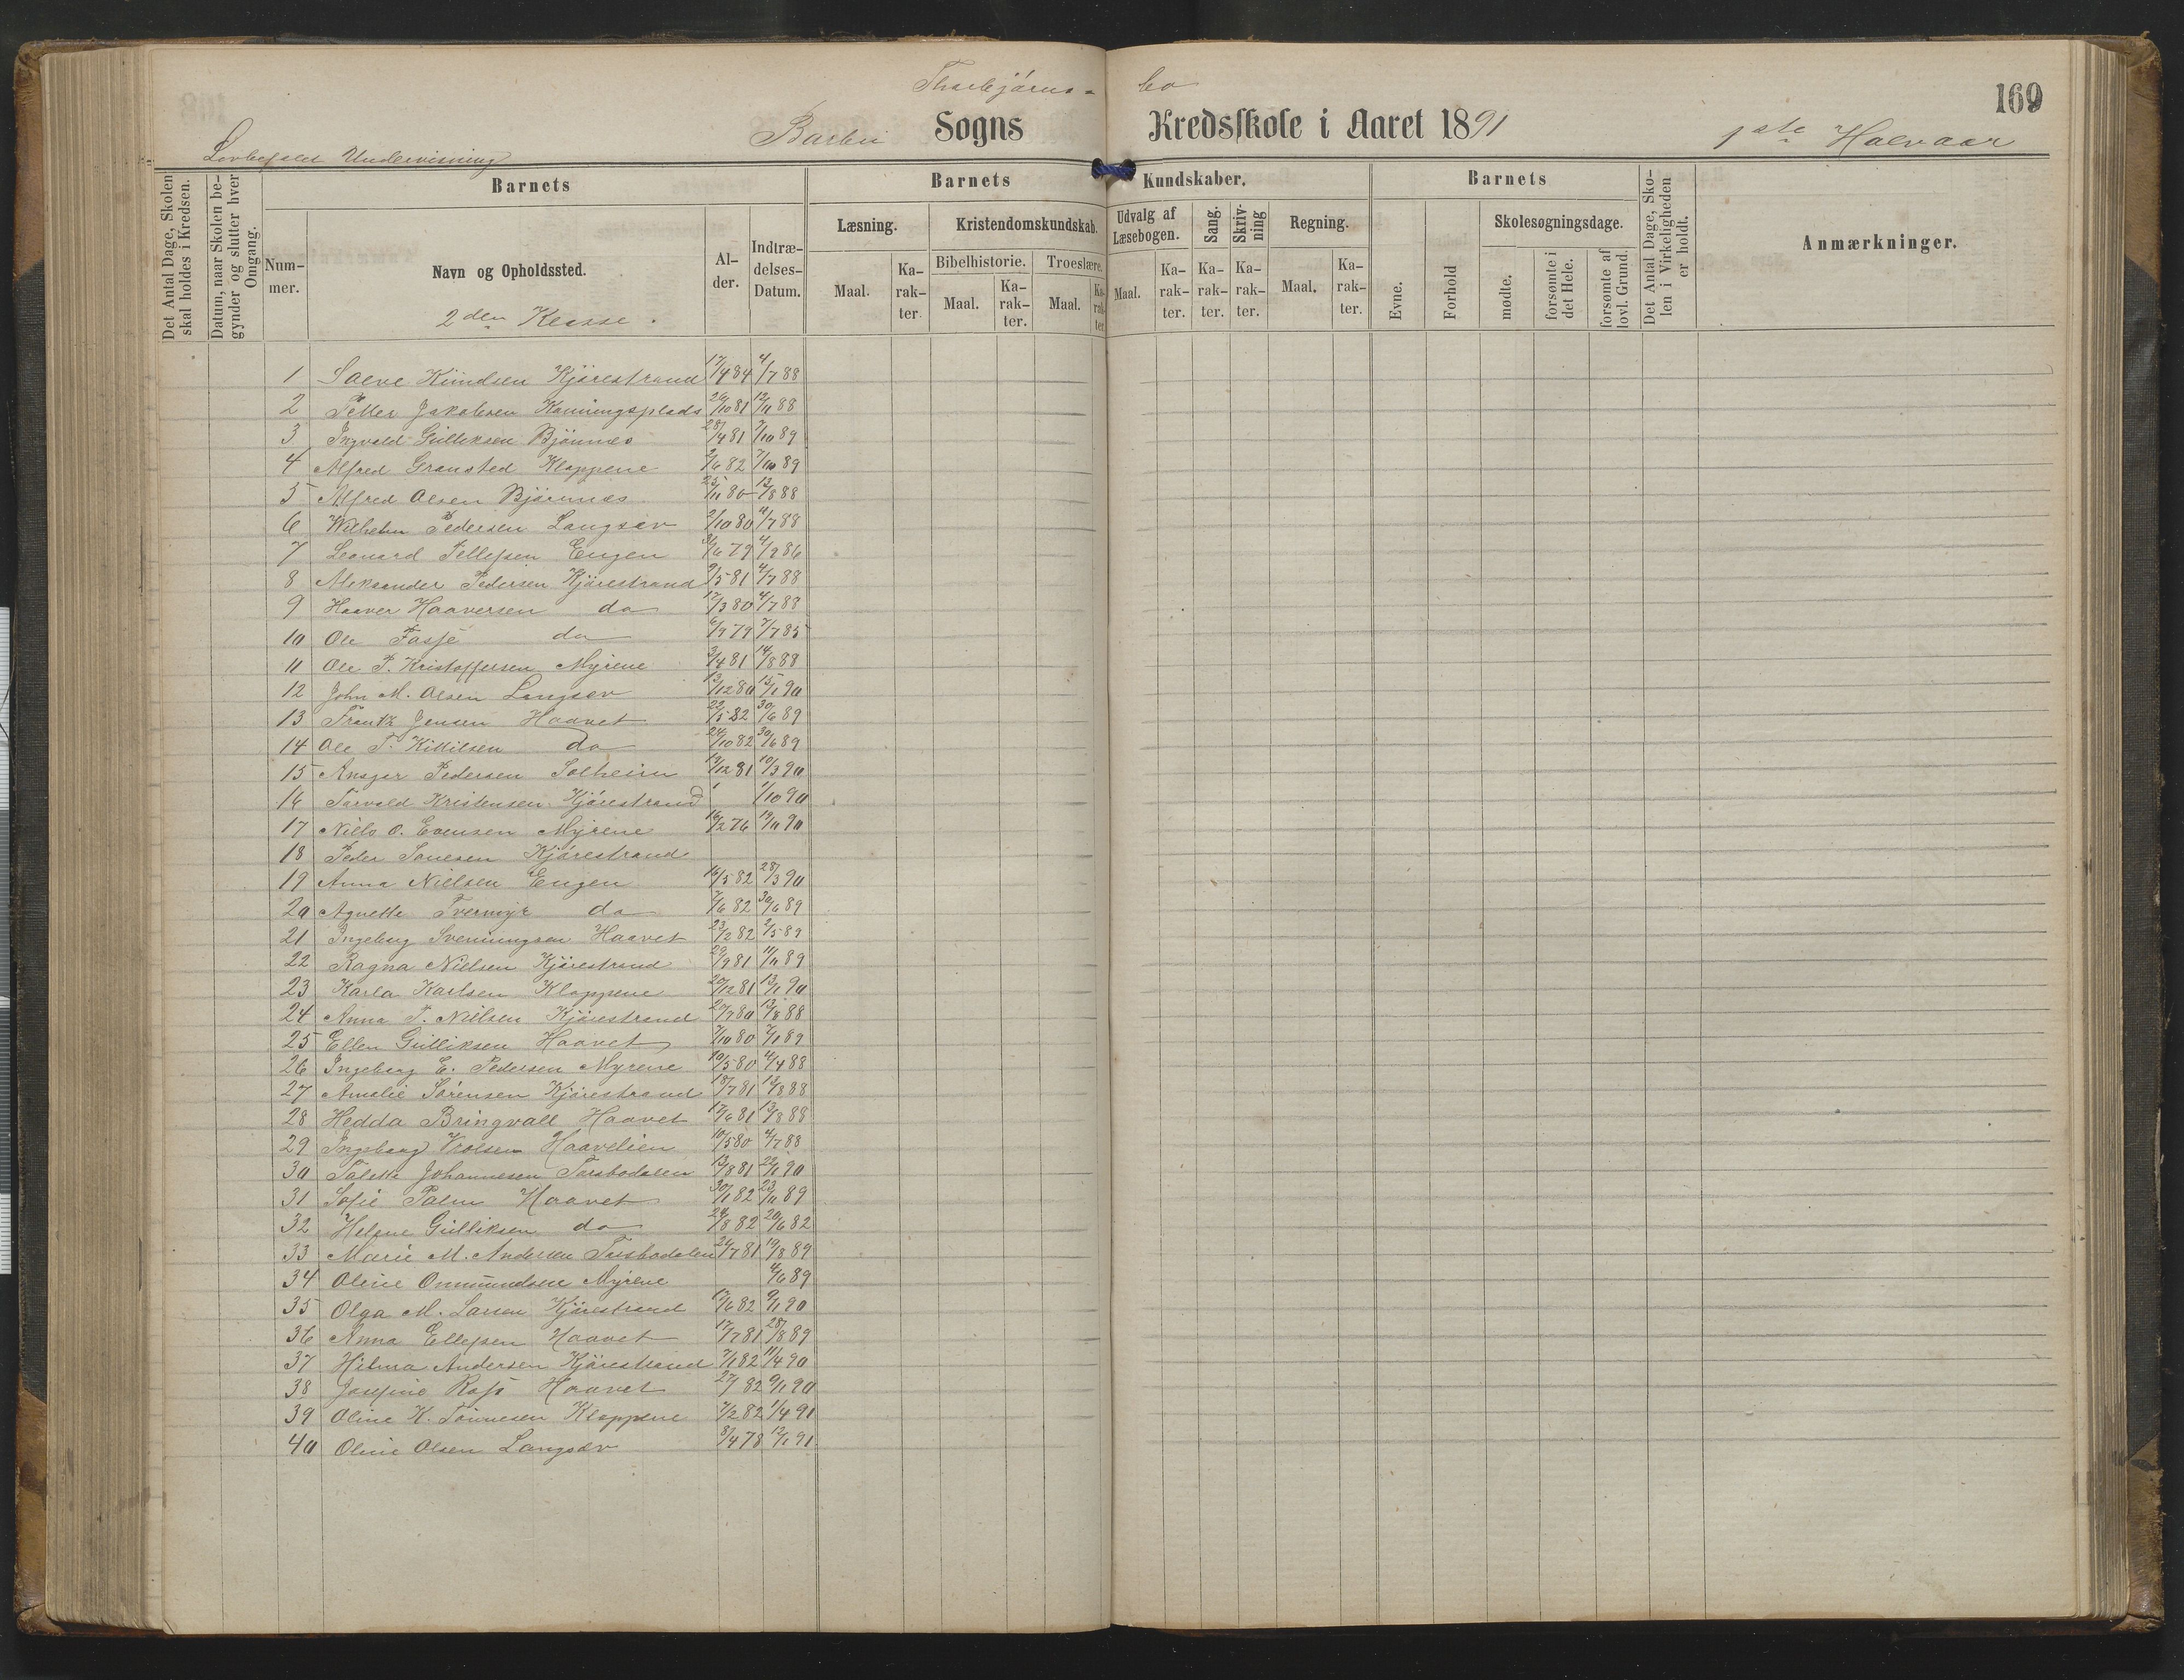 Thorbjörns=bo
169
Barbu Sogns Kredsskole i Aaret 1891 1ste Halvaar
Lovbefalet Undervisning
Det Antal Dage, Skolen skal holdes i Kredsen.
Datum, naar Skolen begynder og slutter hver Omgang.
Barnets
Nummer.
Navn og Opholdssted.
2den Klasse.
Alder.
Indtrædelses-Datum.
Barnets Kundskaber.
Læsning.
Maal.
Karakter.
Kristendomskundskab.
Bibelhistorie.
Maal.
Karakter.
Troeslære.
Maal.
Karakter.
Udvalg af Læsebogen.
Maal.
Karakter.
Sang.
Karakter.
Skrivning
Karakter.
Regning.
Maal.
Karakter.
Barnets
Evne.
Forhold
Skolesøgningsdage.
mødte.
forsømte i det Hele.
forsømte af lovl. Grund.
Det Antal Dage, Skolen i Virkeligheden er holdt.
Anmærkninger.
1 Salve Knudsen Kjörestrand 17/4 84 4/7 88
2 Petter Jakobsen Kanningsplads 26/10 81 12/11 88
3 Ingvald Gulliksen Bjönnes 28/4 81 7/10 89
4 Alfred Gransted Kloppene /6 82 7/10 89
5 Alfred Olsen Bjönnes 25/11 80 13/8 88
6 Wilhelm Pedersen Langsæv 2/10 80 4/7 88
7 Leonard Tellefsen Engen /6 79 4/9 86
8 Aleksander Pedersen Kjörestrand 9/5 81 4/7 88
9 Haaver Haaversen do 17/3 80 4/7 88
10 Ole Fasje do 6/9 79 7/7 85
11 Ole P. Kristoffersen Myrene 3/4 81 14/8 88
12 John M. Olsen Langsæv 13/12 80 15/1 90
13 Frantz Jensen Haavet 22/5 82 30/6 89
14 Ole T. Kittilsen do 24/10 82 30/6 89
15 Ansgar Pedersen Solheim 19/12 81 10/3 90
16 Torvald Kristensen Kjörestrand 1/10 90
17 Niels O. Evensen Myrene 16/2 76 19/11 90
18 Peder Kjörestrand
19 Anna Nielsen Engen 16/5 82 28/3 90
20 Agnette Tvermyr do 7/6 82 30/6 89
21 Ingeborg Svenningsen Haavet 23/2 82 2/5 89
22 Ragna Nielsen Kjörestrand 29/9 81 11/11 89
23 Karla Karlsen Kloppene 20/12 81 13/1 90
24 Anna T. Nielsen Kjörestrand 20/7 80 13/8 88
25 Ellen Gulliksen Haavet 7/10 80 7/1 89
26 Ingeborg E. Pedersen Myrene 10/5 80 4/4 88
27 Amalie Sörensen Kjörestrand 18/7 81 13/8 88
28 Hedda Bringvall Haavet 17/6 81 13/8 88
29 Ingeborg Vrolsen Haavelien 10/5 80 4/7 88
30 Johannesen Torsbodalen 13/8 81 22/1 90
31 Sofie Palm Haavet 30/1 82 23/11 89
32 Helene Gulliksen do 24/8 82 20/6 82
33 Marie M. Andersen Torsbodalen 24/7 81 19/8 89
34 Oline Onmundsen Myrene 4/6 89
35 Olga M. Larsen Kjörestrand 17/6 82 9/1 90
36 Anna Ellefsen Haavet 17/7 81 28/8 89
37 Hilma Andersen Kjörestrand 7/1 82 11/4 90
38 Josefine Haavet 27/ 82 9/1 90
39 Oline K. Tönnesen Kloppene 7/2 82 1/4 91
40 Oline Olsen Langsæv 8/4 78 12/1 91